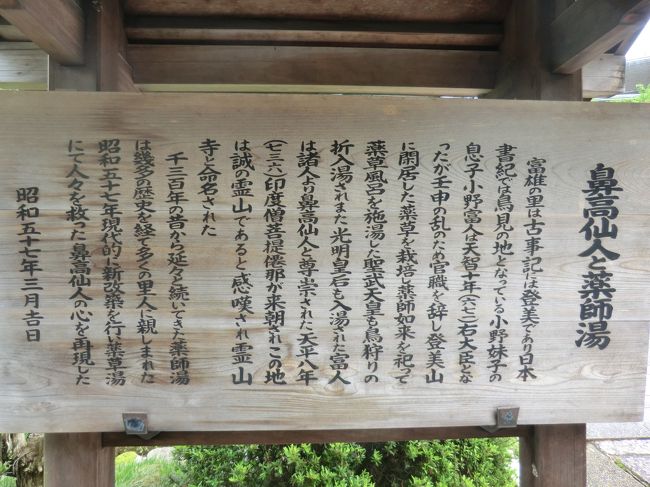 鼻高仙人と薬師湯
富雄の里は古事記には登美であり日本
書紀では鳥見の地となっている小野妹子の
息子小野富人は天智十年(六七二)右大臣とな
ったが壬申の乱のため官職を辞し登美山
に閑居した薬草を栽培し薬師如来を祀って
薬草風呂を施湯した聖武天皇も鳥狩りの
折入湯された光明皇后も入湯された富人
は諸人より鼻高仙人と尊崇された天平八年
(七三六)印度僧菩提僊那が来朝されこの地
は誠の霊山であると感嘆され霊山
寺と命名された
千三百年の昔から延々と続いてきた薬師湯
は幾多の歴史を経て多くの里人に親しまれた
昭和五十七年現代的に新改築を行い薬草湯
にて人々を救った鼻高仙人の心を再現した
昭和五十七年三月吉日